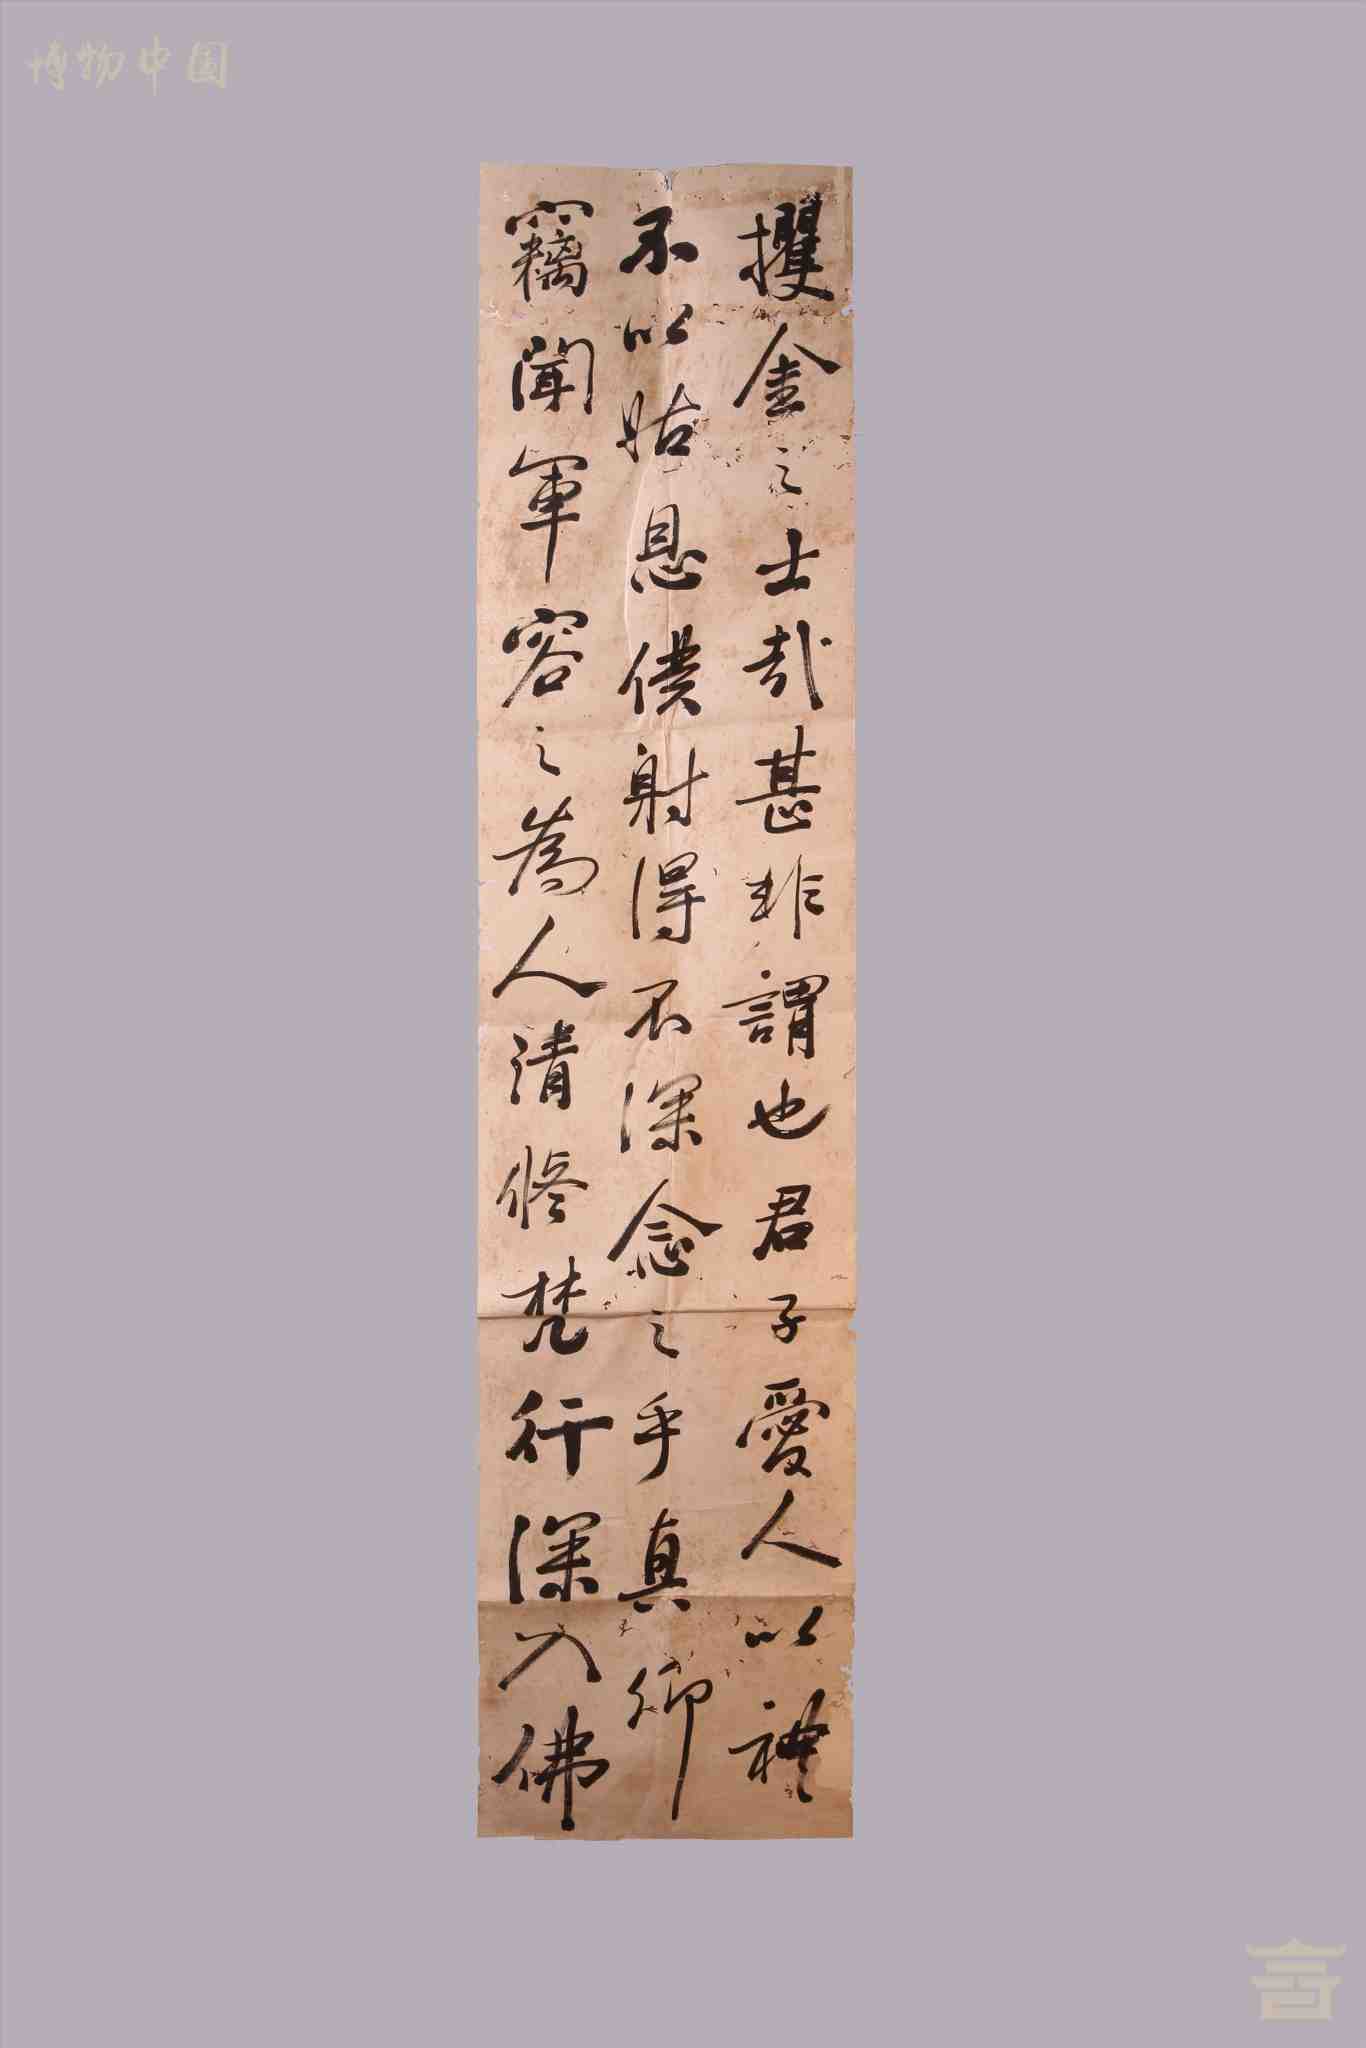 博物中国
攫金之士哉甚非謂也君子愛人以禮
不以姑息僕射得不深念之乎真卿
竊聞軍容之為人清修梵行深入佛